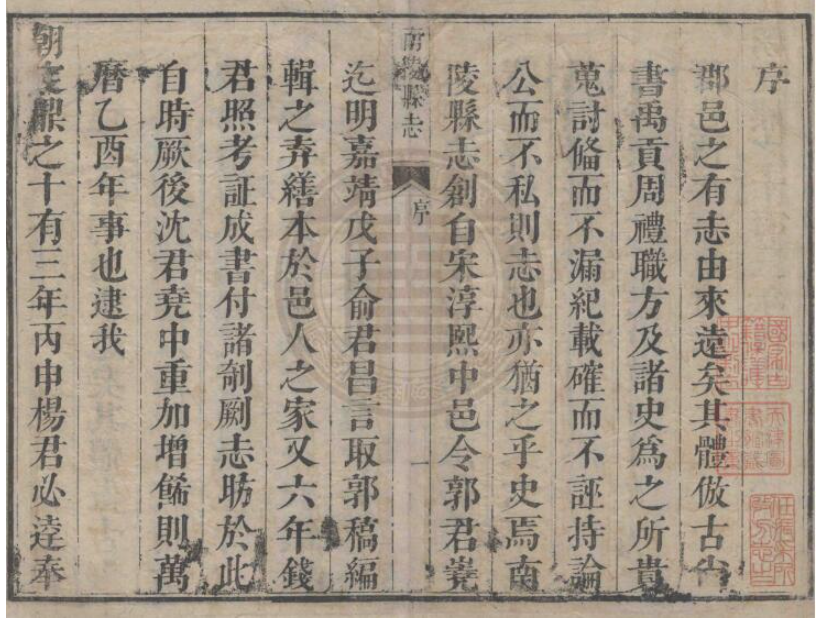 序
郡邑之有志由來遠矣其體倣古
書禹貢周禮職方及諸史爲之所貴
蒐討俻而不漏紀載確而不誣持論
公而不私則志也亦猶之乎史焉南
陵縣志創自宋淳熙中邑令郭君嶤
南陵縣志
序
一
迄明嘉靖戊子俞君昌言取郭稿編
輯之弆繕本於邑人之家又六年錢
君照考証成書付諸剞劂志昉於此
自時厥後沈君堯中重加增餙則萬
曆乙酉年事也逮我
朝定鼎之十有三年丙申楊君必達奉